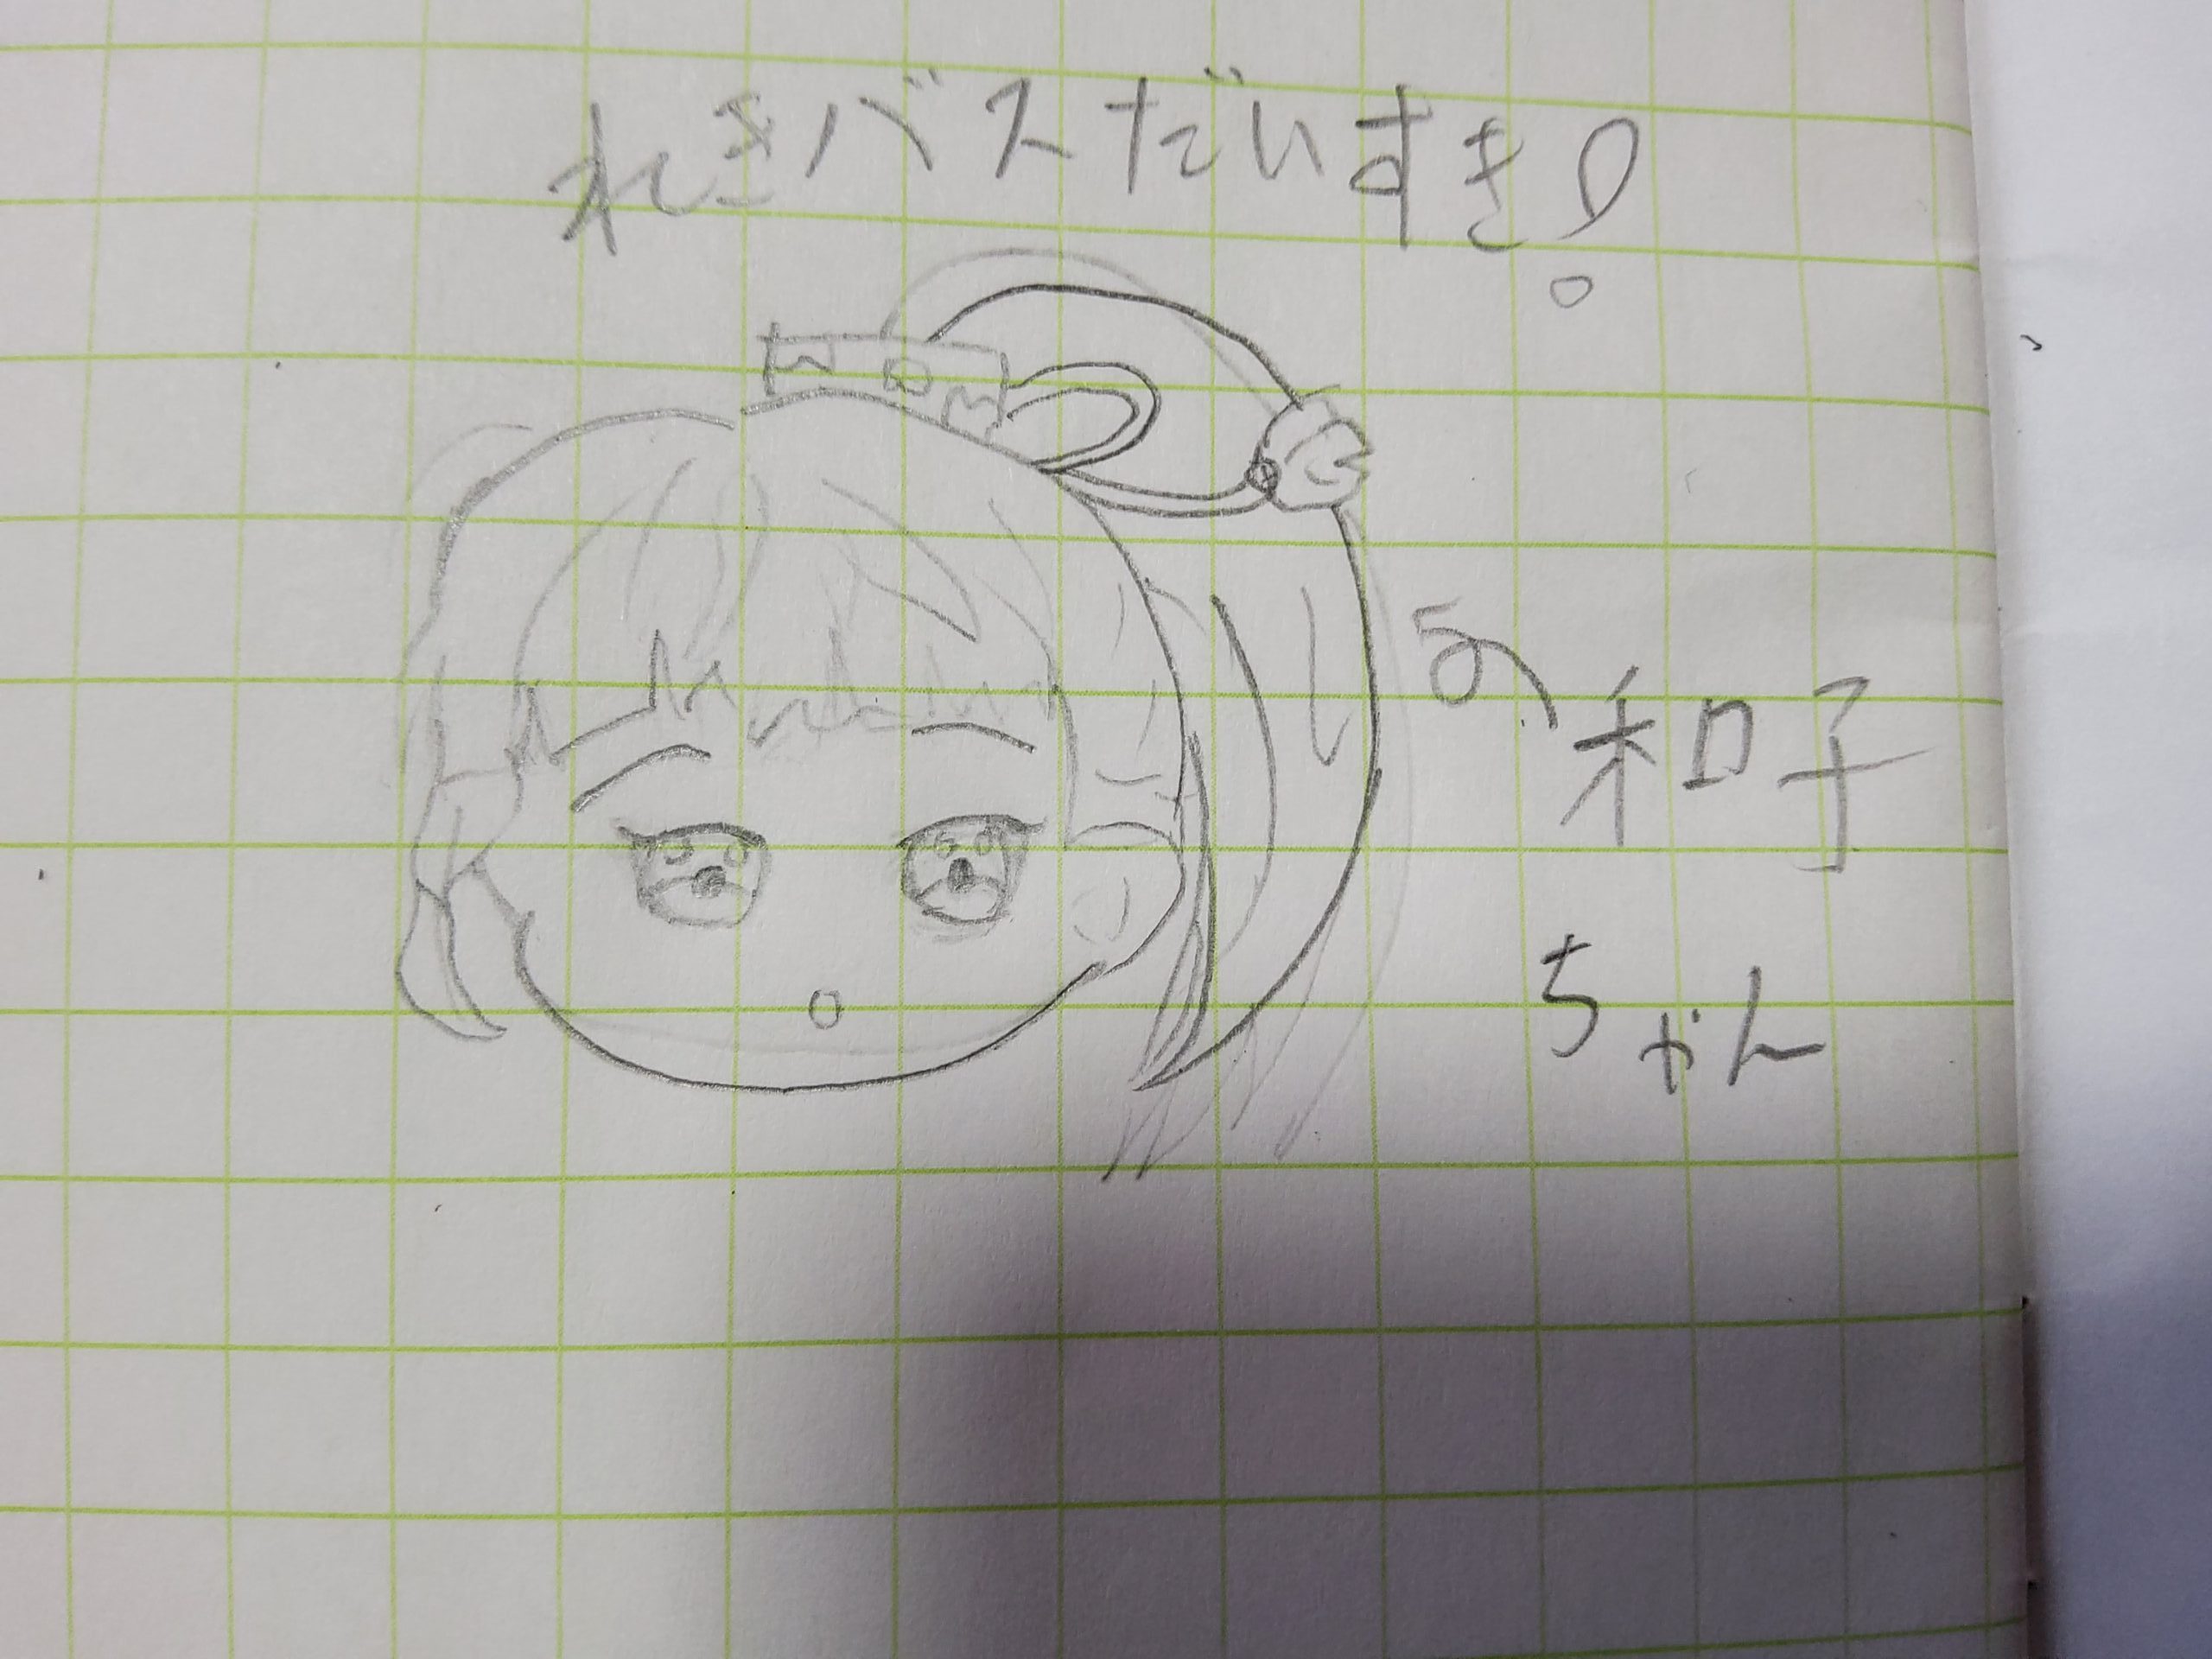 れきバスだいすき!
和子
ちゃん